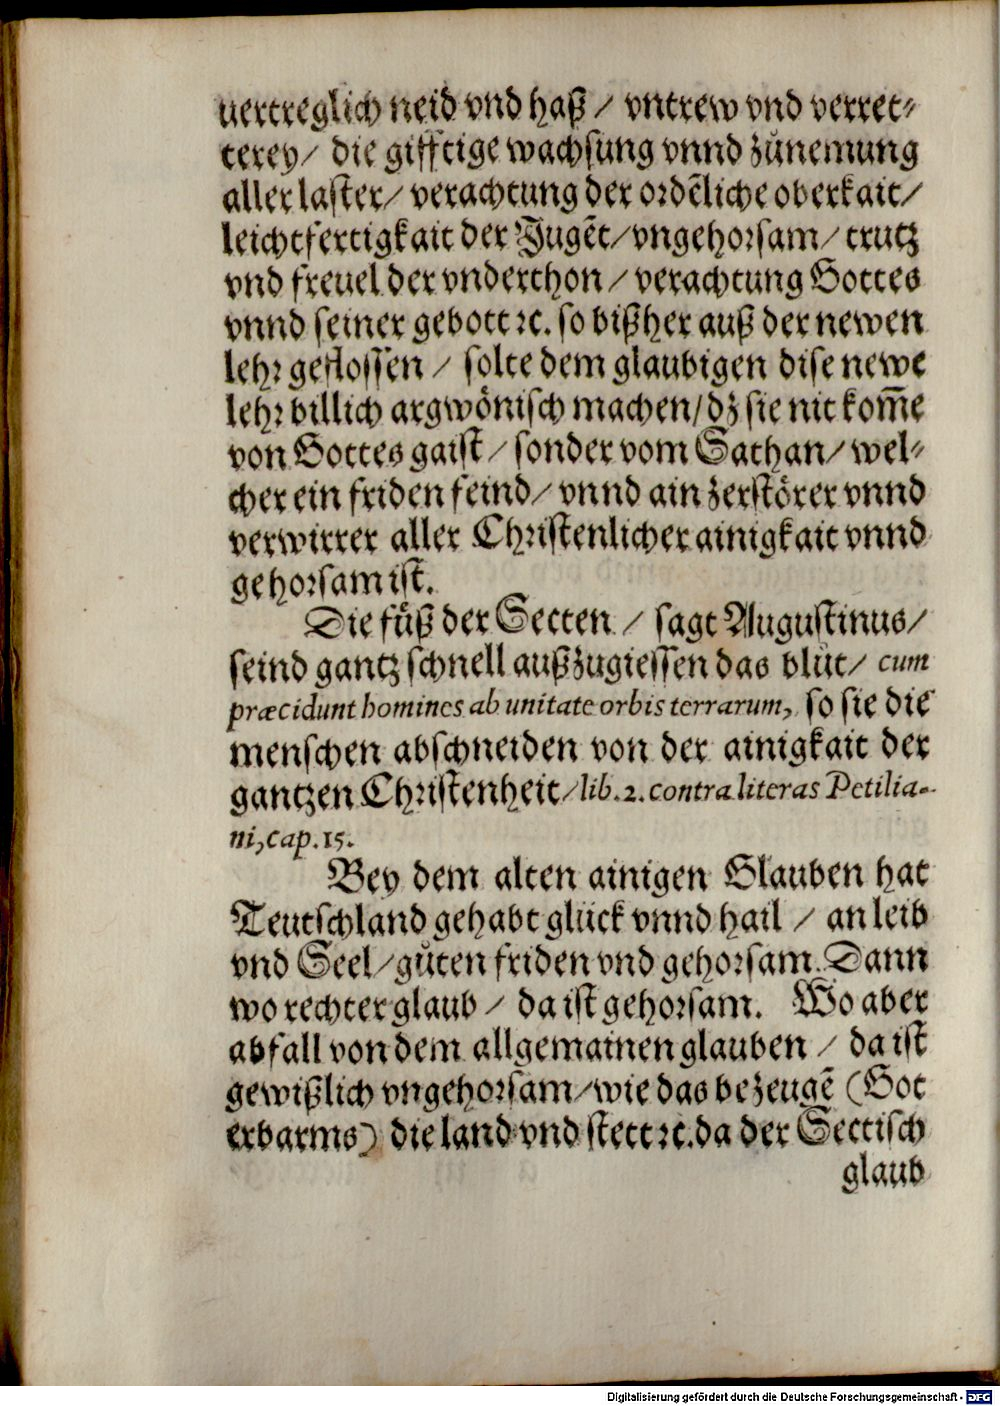 uertreglich neid vnd haß / vntrew vnd verret⸗
terey / die gifftige wachsung vnnd zůnemung
aller laster / verachtung der ordẽliche oberkait /
leichtfertigkait der Jugẽt / vngehorsam / trutz
vnd freuel der vnderthon / verachtung Gottes
vnnd seiner gebott ꝛc. so bißher auß der newen
lehr geflossen / solte dem glaubigen dise newe
lehr billich argwönisch machen / dz sie nit kom̃e
von Gottes gaist / sonder vom Sathan / wel⸗
cher ein friden feind / vnnd ain zerstörer vnnd
verwirrer aller Christenlicher ainigkait vnnd
gehorsam ist.
Die fůß der Secten / sagt Augustinus /
seind gantz schnell außzugiessen das blůt / cum
præcidunt homines ab unitate orbis terrarum, so sie die
menschen abschneiden von der ainigkait der
gantzen Christenheit / lib. 2. contra literas Petilia-
ni, cap. 15.
Bey dem alten ainigen Glauben hat
Teutschland gehabt glück vnnd hail / an leib
vnd Seel / gůten friden vnd gehorsam. Dann
wo rechter glaub / da ist gehorsam. Wo aber
abfall von dem allgemainen glauben / da ist
gewißlich vngehorsam / wie das bezeugẽ (Got
erbarms) die land vnd stett ꝛc. da der Sectisch
glaub
Digitalisierung gefördert durch die Deutsche Forschungsgemeinschaft - DFG